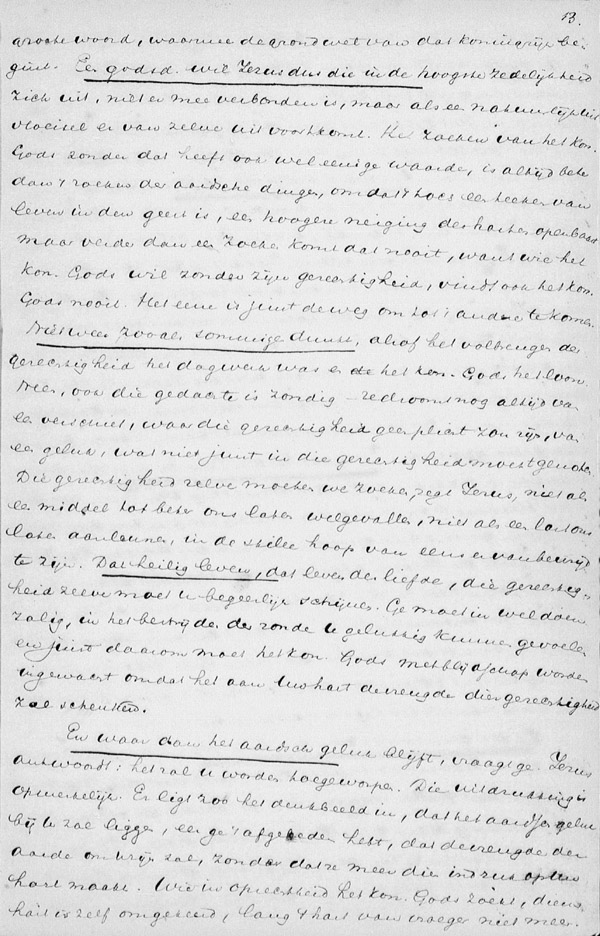 13.
groote woord, waarmee de grondwet van dat koningrijk be-
gint. Een godsd. wil Jezus dus die in de hoogste zedelijkheid
zich uit, niet er mee verbonden is, maar als een natuurlijk uit
vloeisel er van zelve uit voortkomt. Het zoeken van het kon.
Gods zonder dat heeft ook wel eenige waarde, is altijd beter
dan 't zoeken der aardsche dingen, omdat 't toch een teeken van
leven in den geest is, een hoogere neiging des harten openbaart
maar verder dan een zoeken komt dat nooit, want wie het
kon. Gods wil zonder zijn gerechtigheid, vindt ook het kon.
Gods nooit. Het eene is juist de weg om tot 't andere te komen.
Niet weer zooals sommigen denken, alsof het volbrengen der
gerechtigheid het dagwerk was en het kon. Gods het loon.
Neen, ook die gedachte is zondig – ze droomt nog altijd van
een verschiet, waar die gerechtigheid geen plicht zou zijn, van
een geluk, wat niet juist in die gerechtigheid moest genoten
Die gerechtigheid zelve moeten we zoeken, zegt Jezus, niet als
een middel tot beter ons laten welgevallen, niet als een last ons
laten aanleunen, in de stille hoop van eens er van bevrijd
te zijn. Dat heilig leven, dat leven der liefde, die gerechtig-
heid zelve moet u begeerlijk schijnen. Ge moet in weldoen
zalig, in het bestrijden der zonde u gelukkig kunnen gevoelen
en juist daarom moet het kon. Gods met blijdschap worden
ingewacht omdat het aan uw hart de vreugde dier gerechtigheid
zal schenken.
En waar dan het aardsch geluk blijft, vraagt ge. Jezus
antwoordt: het zal u worden toegeworpen. Die uitdrukking is
opmerkelijk. Er ligt zoo het denkbeeld in, dat het aardsch geluk
bij u zal liggen, eer ge 't afgebeden hebt, dat de vreugde der
aarde om u zijn zal, zonder dat ze meer die indruk op uw
hart maakt. Wie in oprechtheid het kon. Gods zoekt, diens
hart is zelf omgekeerd, hangt 't hart van vroeger niet meer.